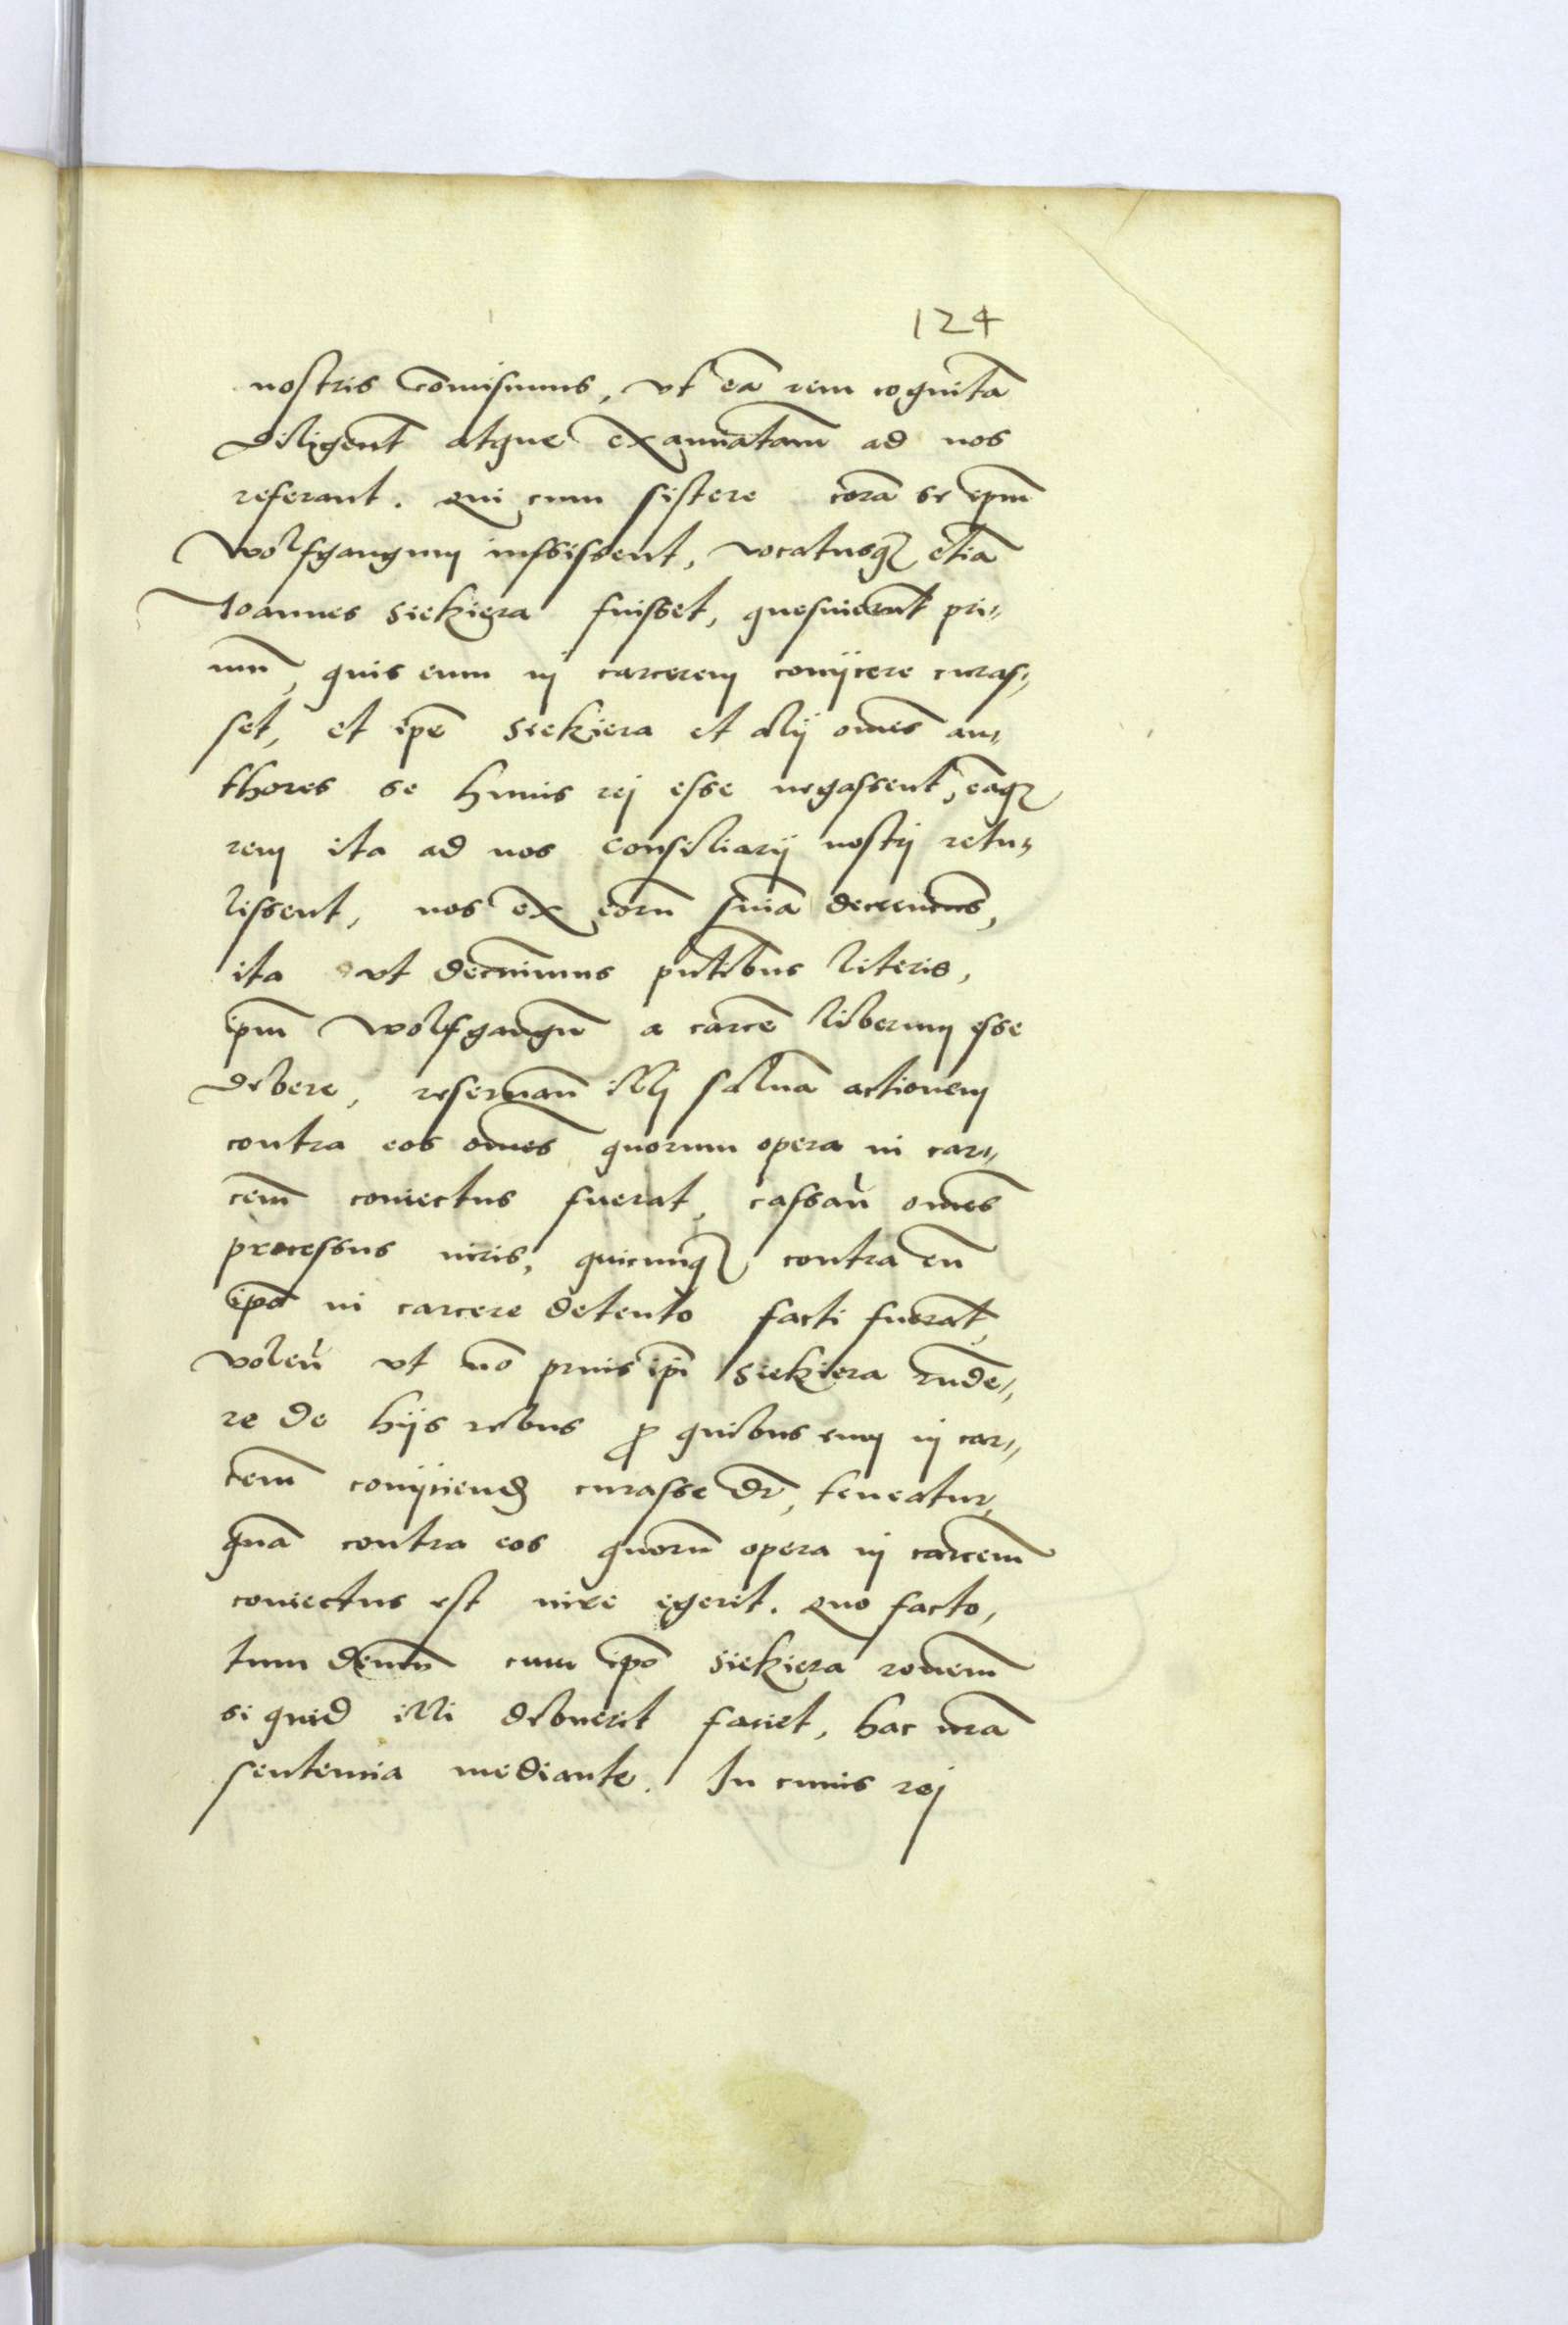 124
nostris com̄isimus, ut eā rem cognitā
diligent̄ atque examinatam̄ ad nos
referant. Qui cum sistere corā se ip̄m
Wolfgangum iussissent, vocatusq̄ etiā
Ioannes Siekiera fuisset, quesiuerūt pri„
mū, quis eum in carcerem conijcere curas„
set, et ip̄e Siekiera et alij om̄es au„
thores se huius rej esse negassent, eāq̄
rem ita ad nos consiliarij nostrj retu„
lissent, nos ex eorū sn̄ia decreuim̄s,
ita ut decn̄imus pn̄tibus literis,
ip̄m Wolfgangū a carcē liberum esse
debere, reseruan̄ illj saluā actionem
contra eos om̄es quorum opera in car„
cem̄ coniectus fuerat, cassan̄ om̄es
processus iuris, quicunq̄ contra eū
ip̄o in carcere detento facti fuerāt,
volen̄ ut nō prius ip̄i Siekiera r̄nde„
re de hijs rebus ꝓ quibus eum in car„
cem̄ conijciend̄ curasse dr̄, teneatur,
quā contra eos quorū opera in carcem̄
coniectus est iure egerit. Quo facto,
tum demū cum ip̄o Siekiera ronem̄
si quid illi debuerit faciet, hac n̄rā
sententia mediante. In cuius rej